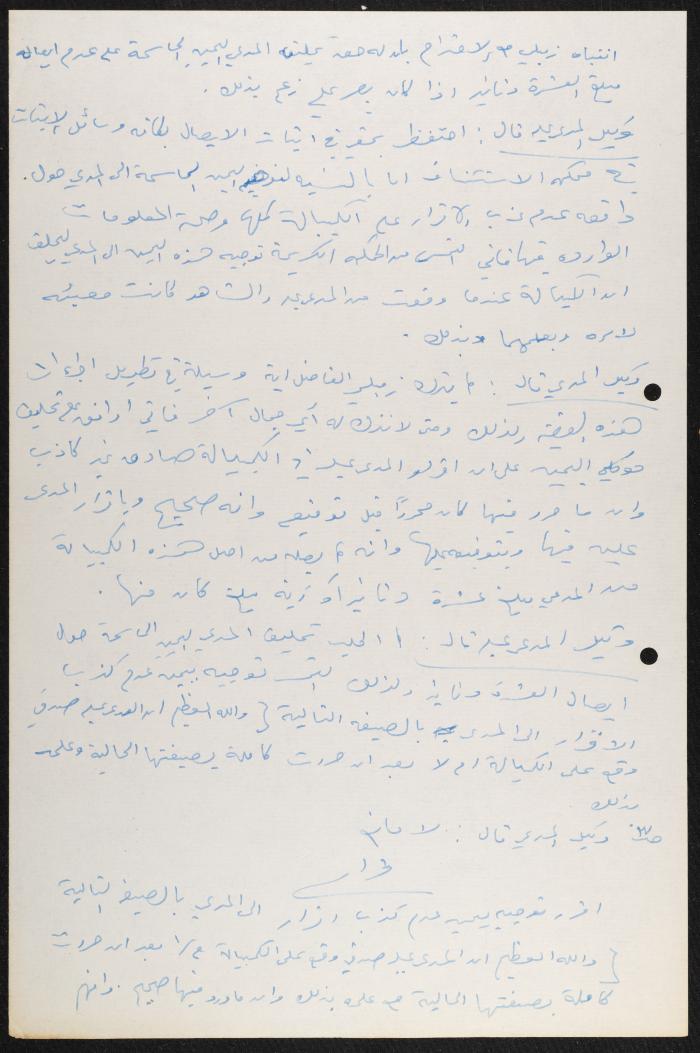 انتباه زميلي مع الاحترام بان له حق تحليف المدعي اليمين الحاسمة على عدم ايصاله
مبلغ العشرة دنانير اذا كان يصر على زعم بذلك .
وكيل المدعى عليه قال : احتفظ بحقي في اثبات الايصال بكافة وسائل الاثبات
في محكمة الاستئناف اما بالنسبة لتوجيه اليمين الحاسمة الى المدعي حول
واقعة عدم كذب الاقرار على الكمبيالة كلها وصحة المعلومات
الواردة فيها فاني التمس من المحكمة الكريمة توجيه هذه اليمين الى المدعي ليحلف
ان الكمبيالة عندما وقعت من المدعى عليه والشاهد كانت معبئه
لامره وبعلمهما بذلك .
وكيل المدعي قال : لم يترك زميلي الفاضل اية وسيلة في تطويل اجراءات
هذه القضية ولذلك وحتى لا نترك له أي مجال آخر فاني اوافق على تحليف
موكلي اليمين على ان اقرار المدعى عليه في الكمبيالة صادق غير كاذب
وان ما حرر فيها كان محررًا قبل توقيعه وانه صحيح وباقرار المدعى
عليه فيها وبتوقيعه عليها وانه لم يصله من اصل هذه الكمبيالة
من المدعي مبلغ عشرة دنانير او اية مبلغ كان منها .
وكيل المدعى عليه قال : لا اطلب تحليف المدعي اليمين الحاسمة حول
ايصال العشرة دنانير ولذلك التمس توجيه يمين عدم كذب
الاقرار الى المدعي بالصيغة التالية { والله العظيم ان المدعى عليه صدقي
وقع على الكمبيالة ام لا بعد ان حررت كاملة بصيغتها الحالية وعلمه
بذلك
وكيل المدعي قال : لا مانع
قرار
اقرر توجيه يمين عدم كذب اقرار الى المدعي بالصيغة التالية
{ والله العظيم ان المدعى عليه صدقي وقع على الكمبيالة بعد ان حررت
كاملة بصيغتها الحالية مع علمه بذلك وان ما ورد فيها صحيح . وافهم